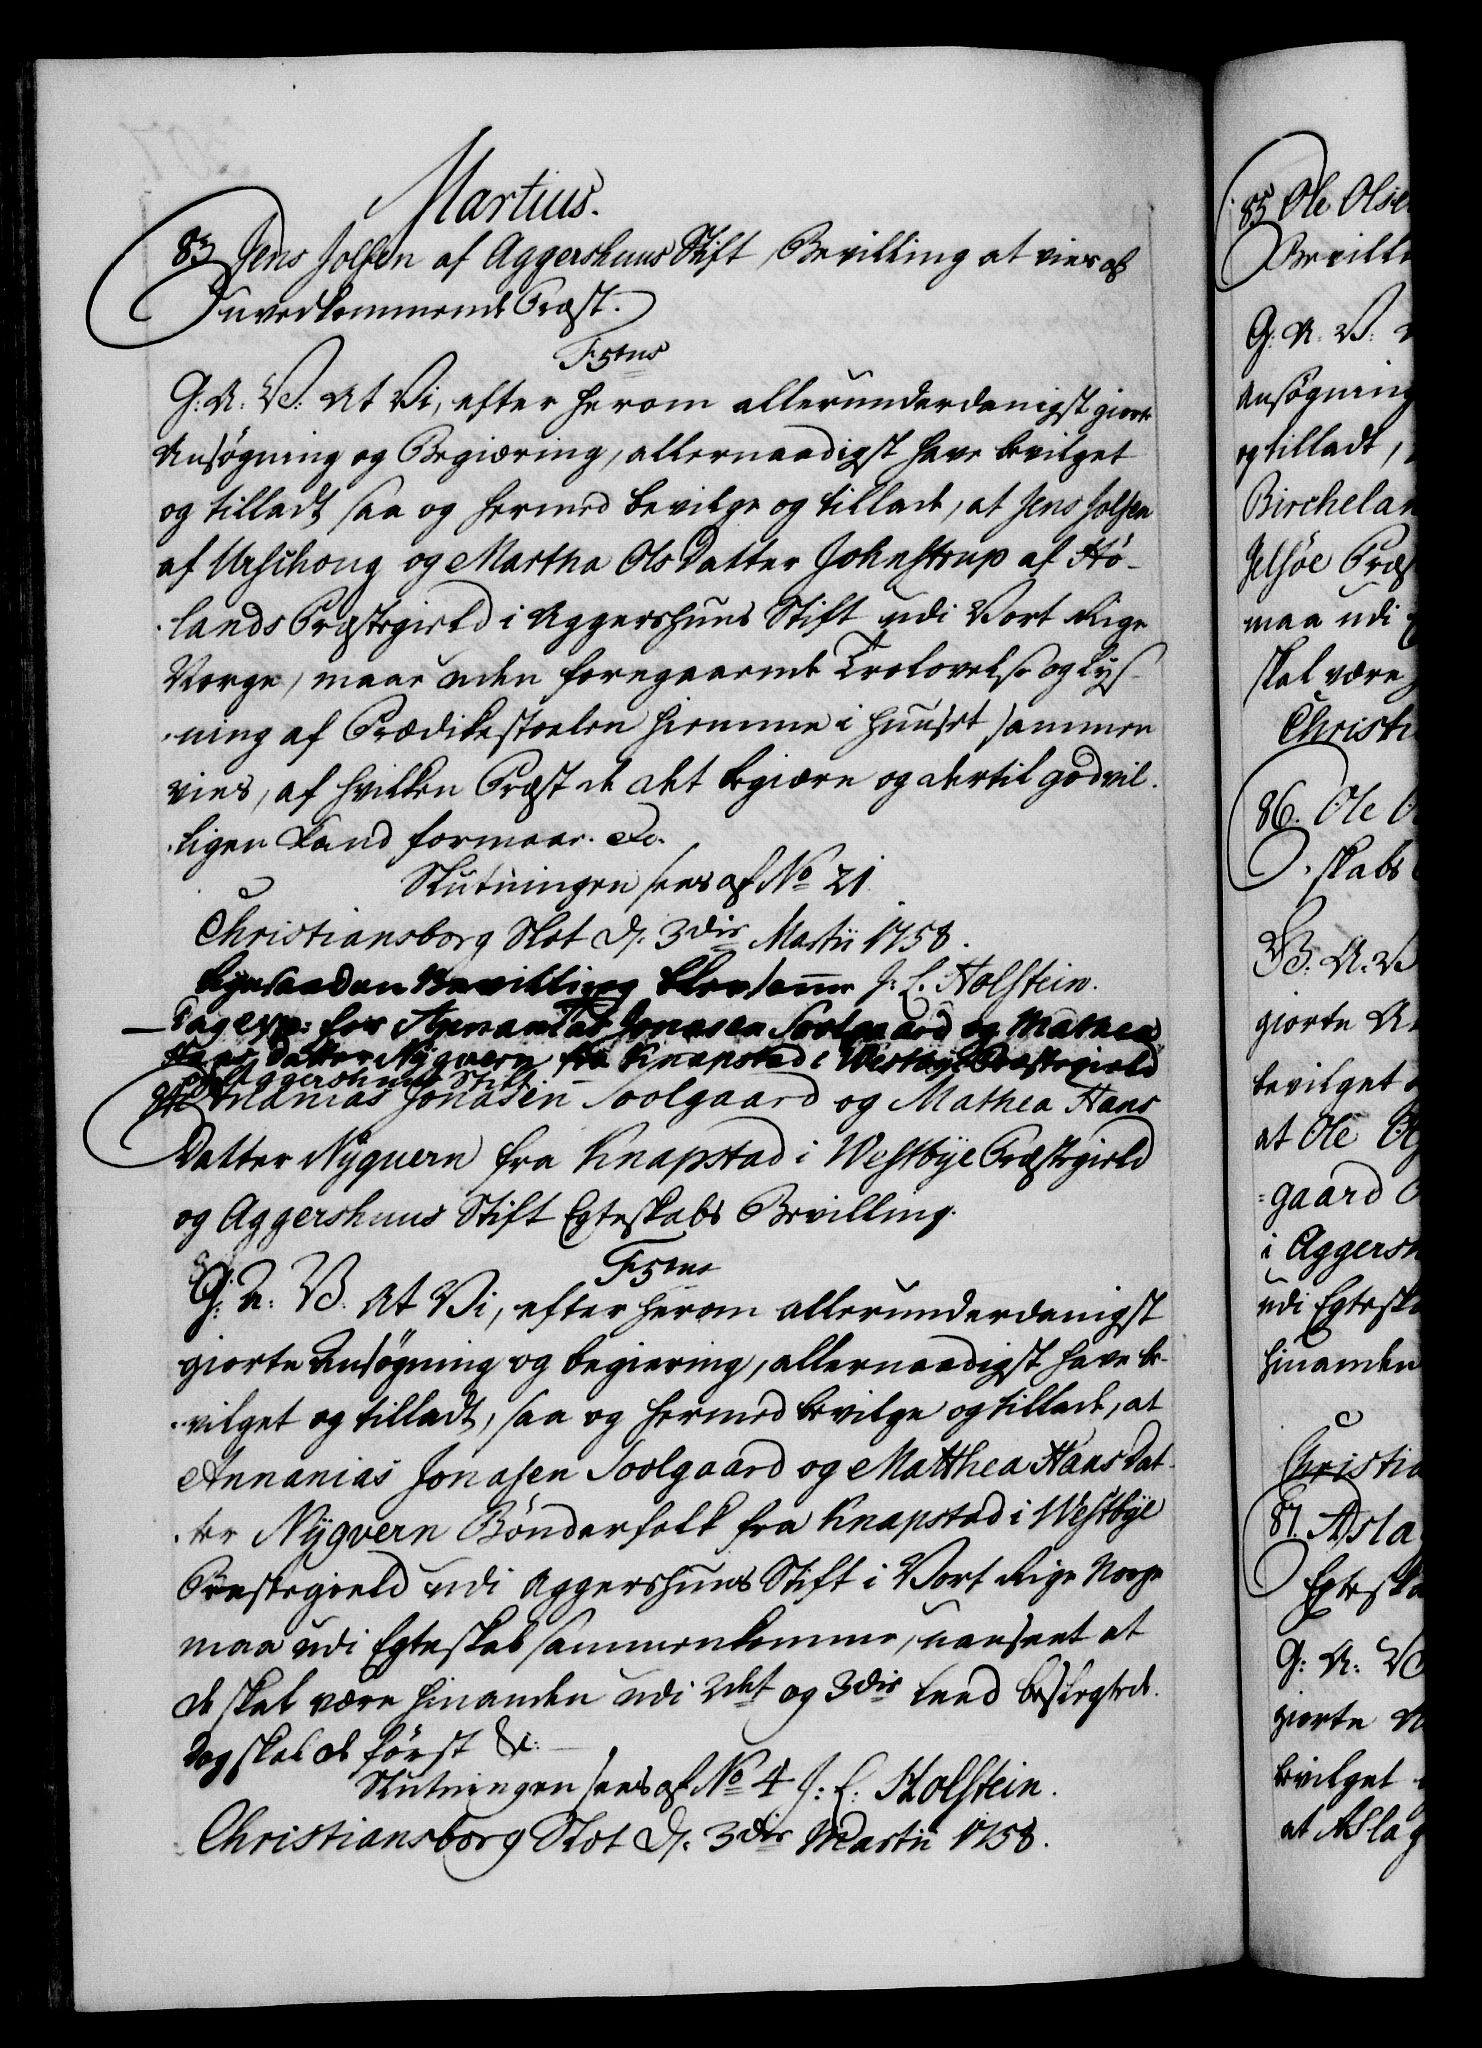 Martius.
83 Jens Jolsen af Aggershuus Stift Bevilling at vies af
uvedkommende Præst.
F 5tus
G: A: V: At Vi, efter herom allerunderdanigst giorte
Ansøgning og Begiæring, allernaadigst have bevilget
og tilladt saa og hermed bevilge og tillade, at Jens Jolsen
af Urschoug og Martha Olsdatter Johnstrup af Hø-
lands Præstegield i Aggershuus Stift udi Vort Rige
Norge, maae uden foregaaende Trolovelse og Lys-
ning af Prædikestoelen hiemme i Huuset sammen
vies, af hvilken Præst de det begiære og dertil godvil-
ligen kand formaae. &c.
Slutningen sees af No 21.
Christiansborg Slot d. 3die Martii 1758.
J: L: Holstein.
Ligesaadan Bevilling blev samme
Dag exp: for Annanias Jonasen Soolgaard og Mathea
Hans Datter Nÿgvern fra Knapstad i Westbÿe Præstegield
Aggershuus Stift
84 Ananias Jonasen Soolgaard og Mathea Hans
Datter Nÿgvern fra Knapstad i Westbÿe Præstegield
og Aggershuus Stift Egteskabs Bevilling.
F 5tus
G: A: V: At Vi, efter herom allerunderdanigst
giorte Ansøgning og begiering, allernaadigst have be-
vilget og tilladt, saa og hermed bevilge og tillade, at
Annanias Jonasen Soolgaard og Matthea Hans Dat-
ter Nÿgvern Bønderfolk fra Knapstad i Westbÿe
Præstegield udi Aggershuus Stift i Vort Rige Norge
maa udi Egteskab sammenkomme, uanseet at
de skal være hinanden udi 2det og 3die Leed beslegtede.
Dog skal de først &c:
Slutningen sees af No 4 J: L: Holstein.
Christiansborg Slot d. 3die Martii 1758.
85 Ole Olse
Bevilli
G: A: V:
Ansøgning
og tilladt,
Birchelan
Jelsøe Præs
maa udi
skal være
Christi
86. Ole
skabs
G: A: V
giorte A
bevilget
at Ole
gaard
i Aggersh
udi Egteska
hinanden
Christia
87. Asla
Egteska
G: A: V
giorte A
bevilget
at Aslag